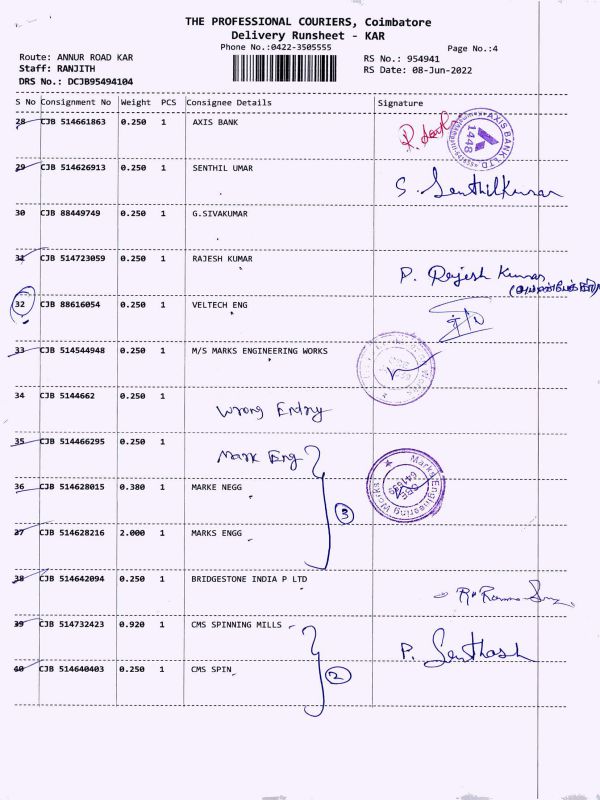 THE PROFESSIONAL COURIERS, Coimbatore
Delivery Runsheet - KAR
Phone No.:0422-3505555
Page No.:4
Route: ANNUR ROAD KAR
RS No.: 954941
Staff: RANJITH
RS Date: 08-Jun-2022
DRS No.: DCJB95494104
S No Consignment No Weight PCS Consignee Details Signature
28 CJB 514661863 0.250 1 AXIS BANK
AXIS BANK LTD 1448
29 CJB 514626913 0.250 1 SENTHIL UMAR S. Senthilkumar
30 CJB 88449749 0.250 1 G.SIVAKUMAR
31 CJB 514723059 0.250 1 RAJESH KUMAR P. Rajesh Kumar
32 CJB 88616054 0.250 1 VELTECH ENG
33 CJB 514544948 0.250 1 M/S MARKS ENGINEERING WORKS
34 CJB 5144662 0.250 1 Wrong Entry
35 CJB 514466295 0.250 1 Mark Eng
36 CJB 514628015 0.380 1 MARKE NEGG Marks Engineering Works
3
37 CJB 514628216 2.000 1 MARKS ENGG
38 CJB 514642094 0.250 1 BRIDGESTONE INDIA P LTD
39 CJB 514732423 0.920 1 CMS SPINNING MILLS P. Senthosh
40 CJB 514640403 0.250 1 CMS SPIN 2